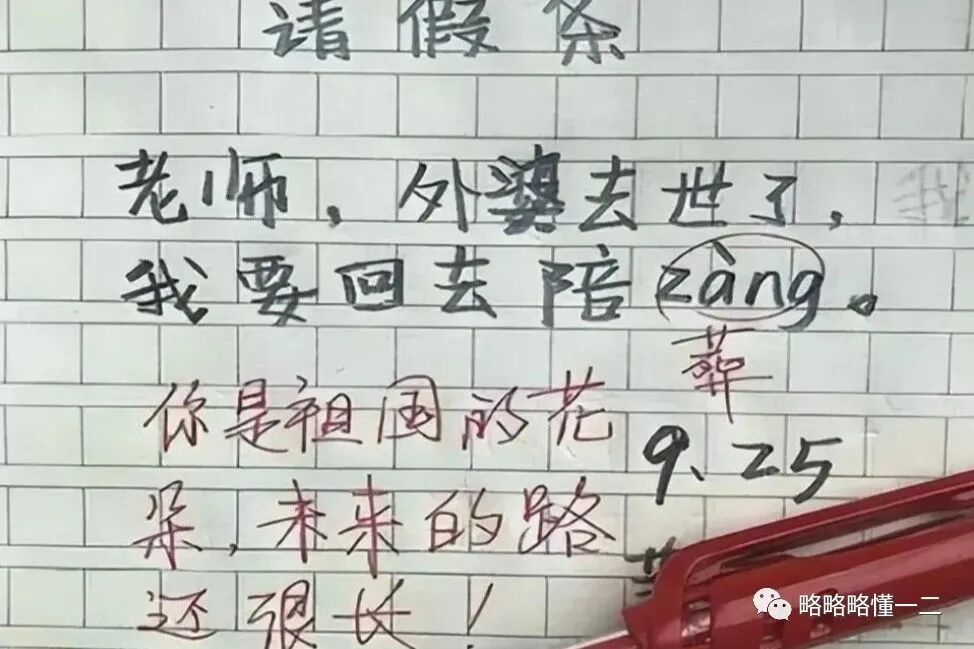 请假条
老师，外婆去世了，
我要回去陪zàng。
葬
你是祖国的花
朵，未来的路
还很长！
9、25
略略略懂一二